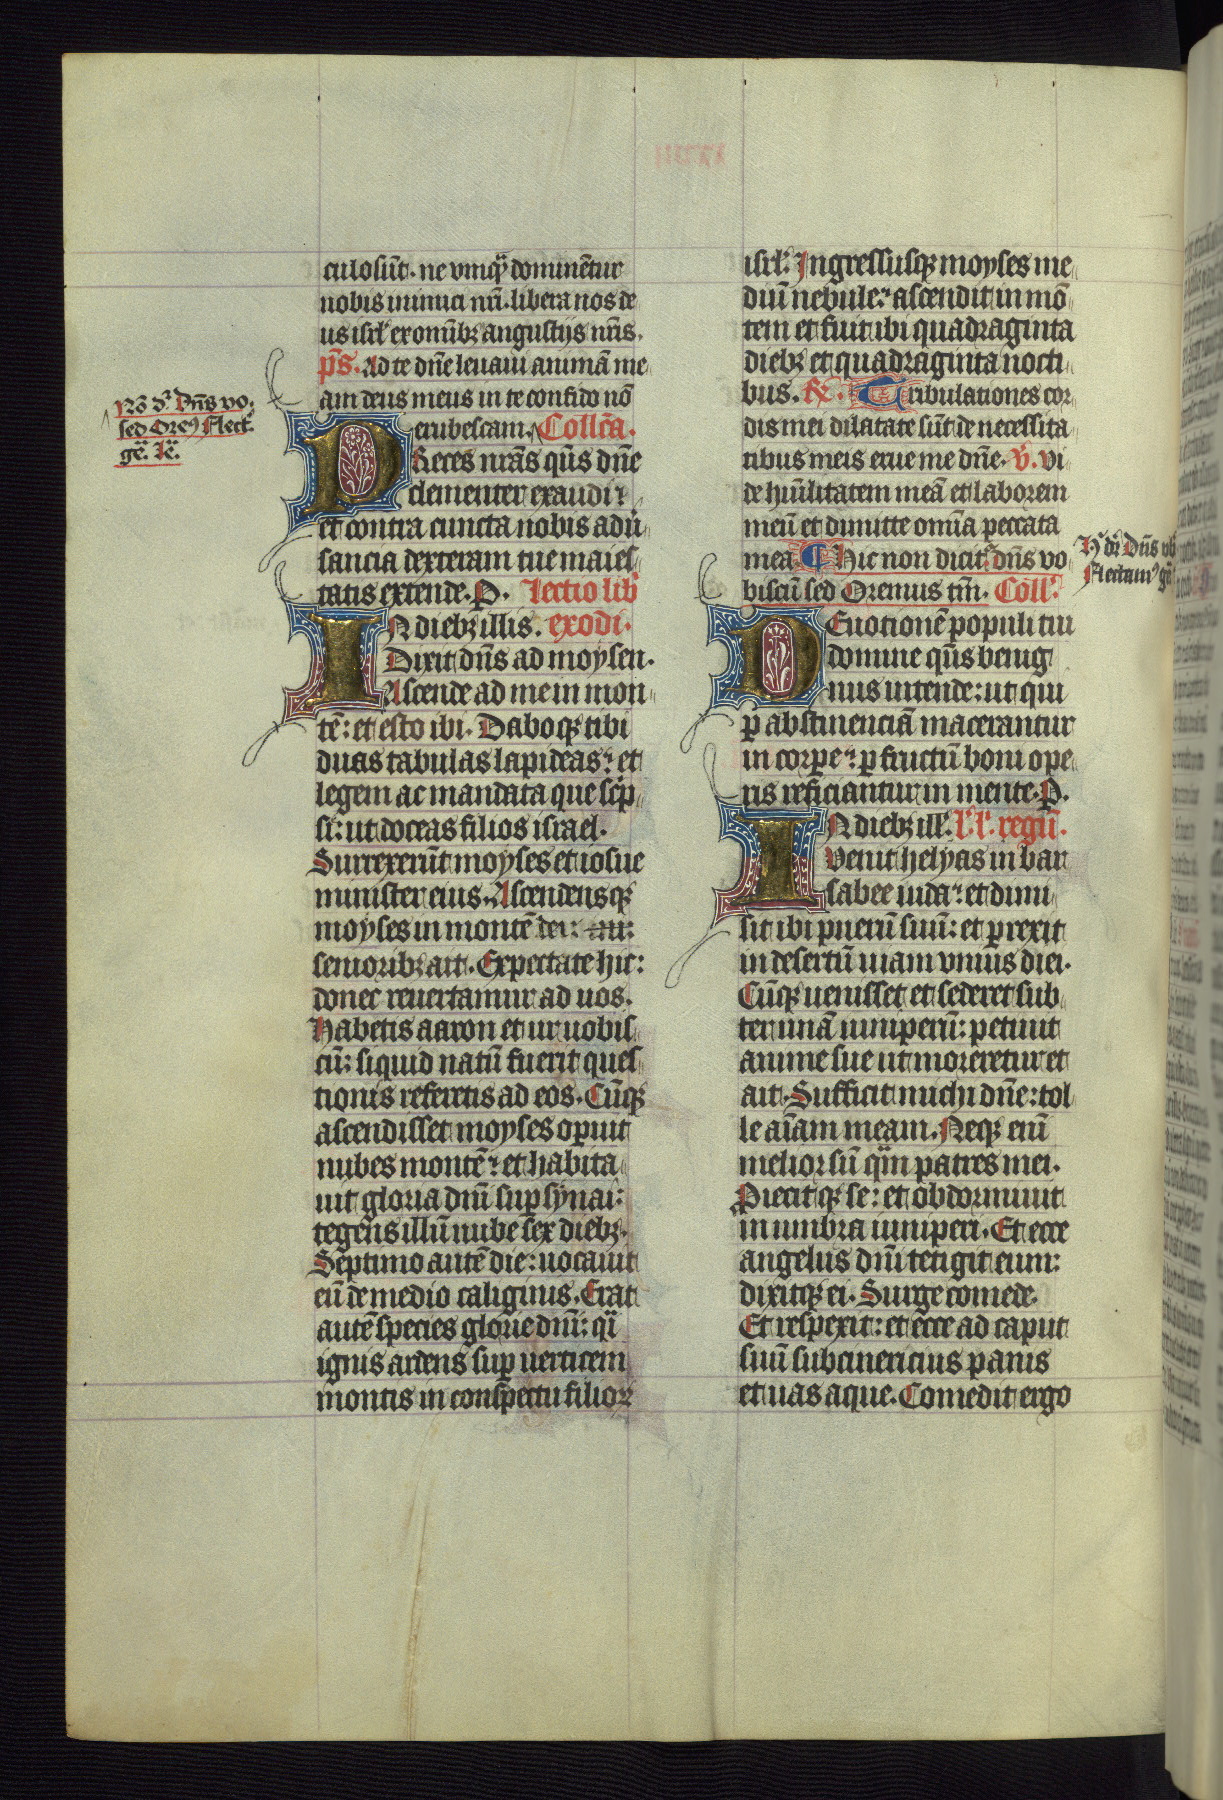 culosūt. ne vnqͣ dominētur
nobis inimici nr̄i. libera nos de
us isrl̄ ex omībꝫ angustijs nr̄is.
p̄s. Ad te dn̄e leuaui animā me
am deus meus in te confido nō
erubescam. Collc̄a.
PReces nr̄as qs̄ dn̄e
clementer exaudi:
et contra cuncta nobis aduer
santia dexteram tue maies
tatis extende. P. Lectio lib̄
IN diebꝫ illis. exodi.
Dixit dn̄s ad moysen.
Ascende ad me in mon
tē: et esto ibi. Daboqꝫ tibi
duas tabulas lapideas: et
legem ac mandata que scͥp
si: ut doceas filios israel.
Surrexerūt moyses et iosue
minister eius. Ascendensqꝫ
moyses in montē dei:
senioribꝫ ait. Expectate hic:
donec reuertamur ad uos.
Habetis aaron et ur uobis
cū: siquid natū fuerit ques
tionis referetis ad eos. Cūqꝫ
ascendisset moyses operuit
nubes montē: et habita
uit gloria dn̄i sup synai:
tegens illū nube sex diebꝫ.
Septimo autē die: uocauit
eū de medio caliginis. Erat
autē species glorie dn̄i: qͣi
ignis ardens sup uerticem
montis in conspectu filioꝝ
Nō dͬ Dn̄s vo.
sed Oreꝰ Flect.
ge. Le.
isrl̄. Ingressusqꝫ moyses me
diū nebule: ascendit in mō
tem et fuit ibi quadraginta
diebꝫ et quadraginta nocti
bus. Tribulationes cor
dis mei dilatate sūt de necessita
tibus meis erue me dn̄e. V̄. Vi
de hūilitatem meā et laborem
meū et dimitte omīa peccata
mea. Hic non dicitͬ dn̄s vo
biscū sed Oremus tm̄. Coll.
DEuotionē populi tui
domine qs̄ benig
nus intende: ut qui
ꝑ abstinenciā macerantur
in corpe: ꝑ fructū boni ope
ris reficiantur in mente. P.
IN diebꝫ ill. l'. l'. regū.
Venit helyas in bar
sabee iuda: et dimi
sit ibi puerū suū: et prexit
in desertū uiam vnius diei.
Cūqꝫ uenisset et sederet sub
ter unā iuniperū: petiuit
anime sue ut moreretur et
ait. Sufficit michi dn̄e: tol
le aīam meam. Neqꝫ enī
melior sū qͣm patres mei.
Proiecitqꝫ se: et obdormiuit
in umbra iuniperi. Et ecce
angelus dn̄i tetigit eum:
dixitqꝫ ei. Surge comede.
Et respexit: et ecce ad caput
suū subcinericius panis
et uas aque. Comedit ergo
Hͥ dͬ Dn̄s vb
Flectamꝰ gē